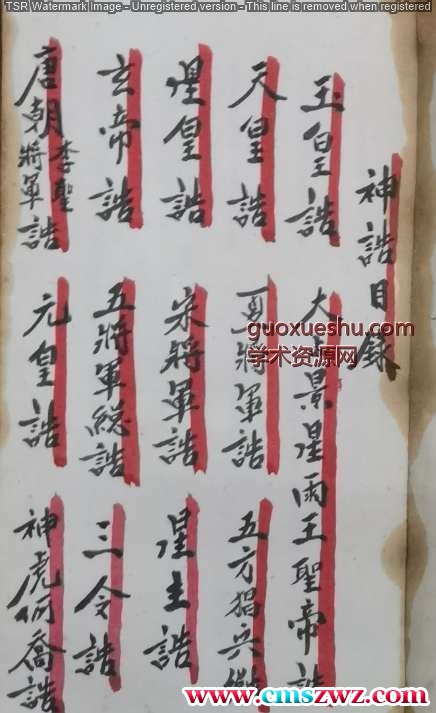 TSR Watermark Image - Unregistered version - This line is removed when registered
神誥目錄
玉皇誥
大景星雨王聖帝誥
天皇誥
將軍誥
五方猖兵
星皇誥
宋將軍誥
星主誥
玄帝誥
五將軍総誥
三令誥
唐朝李聖將軍誥
元皇誥
神虎何喬誥
guoxueshu.com
学术资源网
www.cmszwz.com